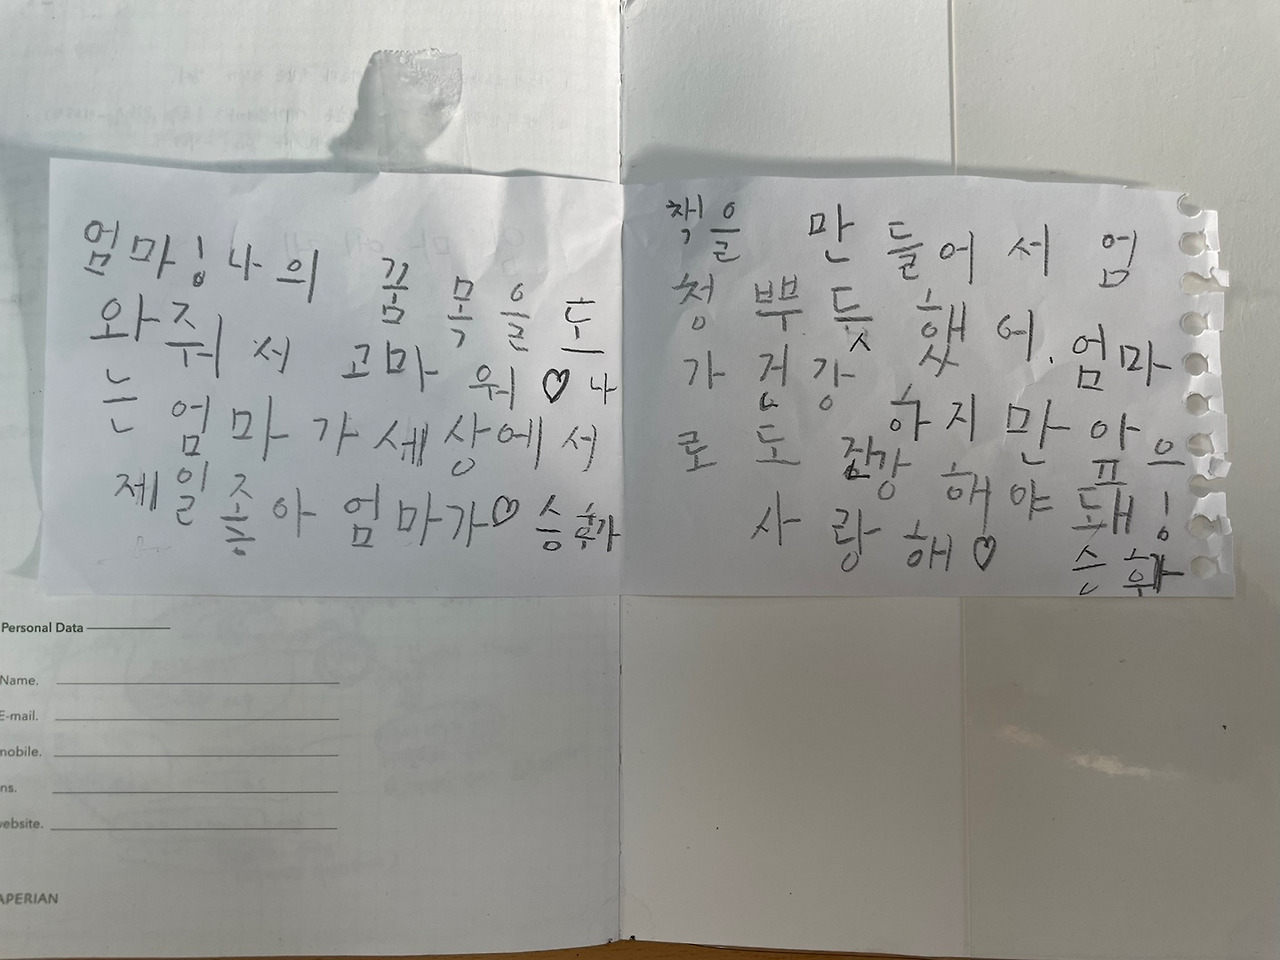 엄마! 나의 꿈 목을 도
와줘서 고마워♡나
는 엄마가 세상에서
제일 좋아 엄마가♡ 승후가
책을 만들어서 엄
청 뿌듯했어. 엄마
가 건강하지만 앞으
로도 건강해야 돼!
사랑해♡ 승후가
Personal Data
Name.
E-mail.
mobile.
ns.
website.
APERIAN